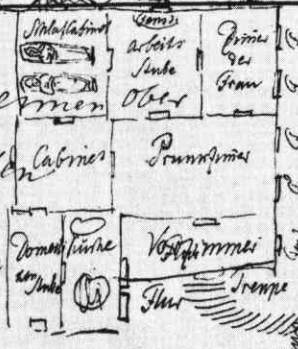 Schlafcabinet
Arbeits
Stube
Zimer
der
Frau
Ober
Cabinet
Prunkzimer
Domes
ken
Stube
Küche
Vorzimmer
Flur
Treppe